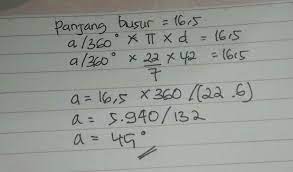 Panjang busur = 16,5
a/360° × π × d = 16,5
a/360° × 22/7 × 42 = 16,5
a = 16,5 × 360 /(22.6)
a = 5.940/132
a = 45°